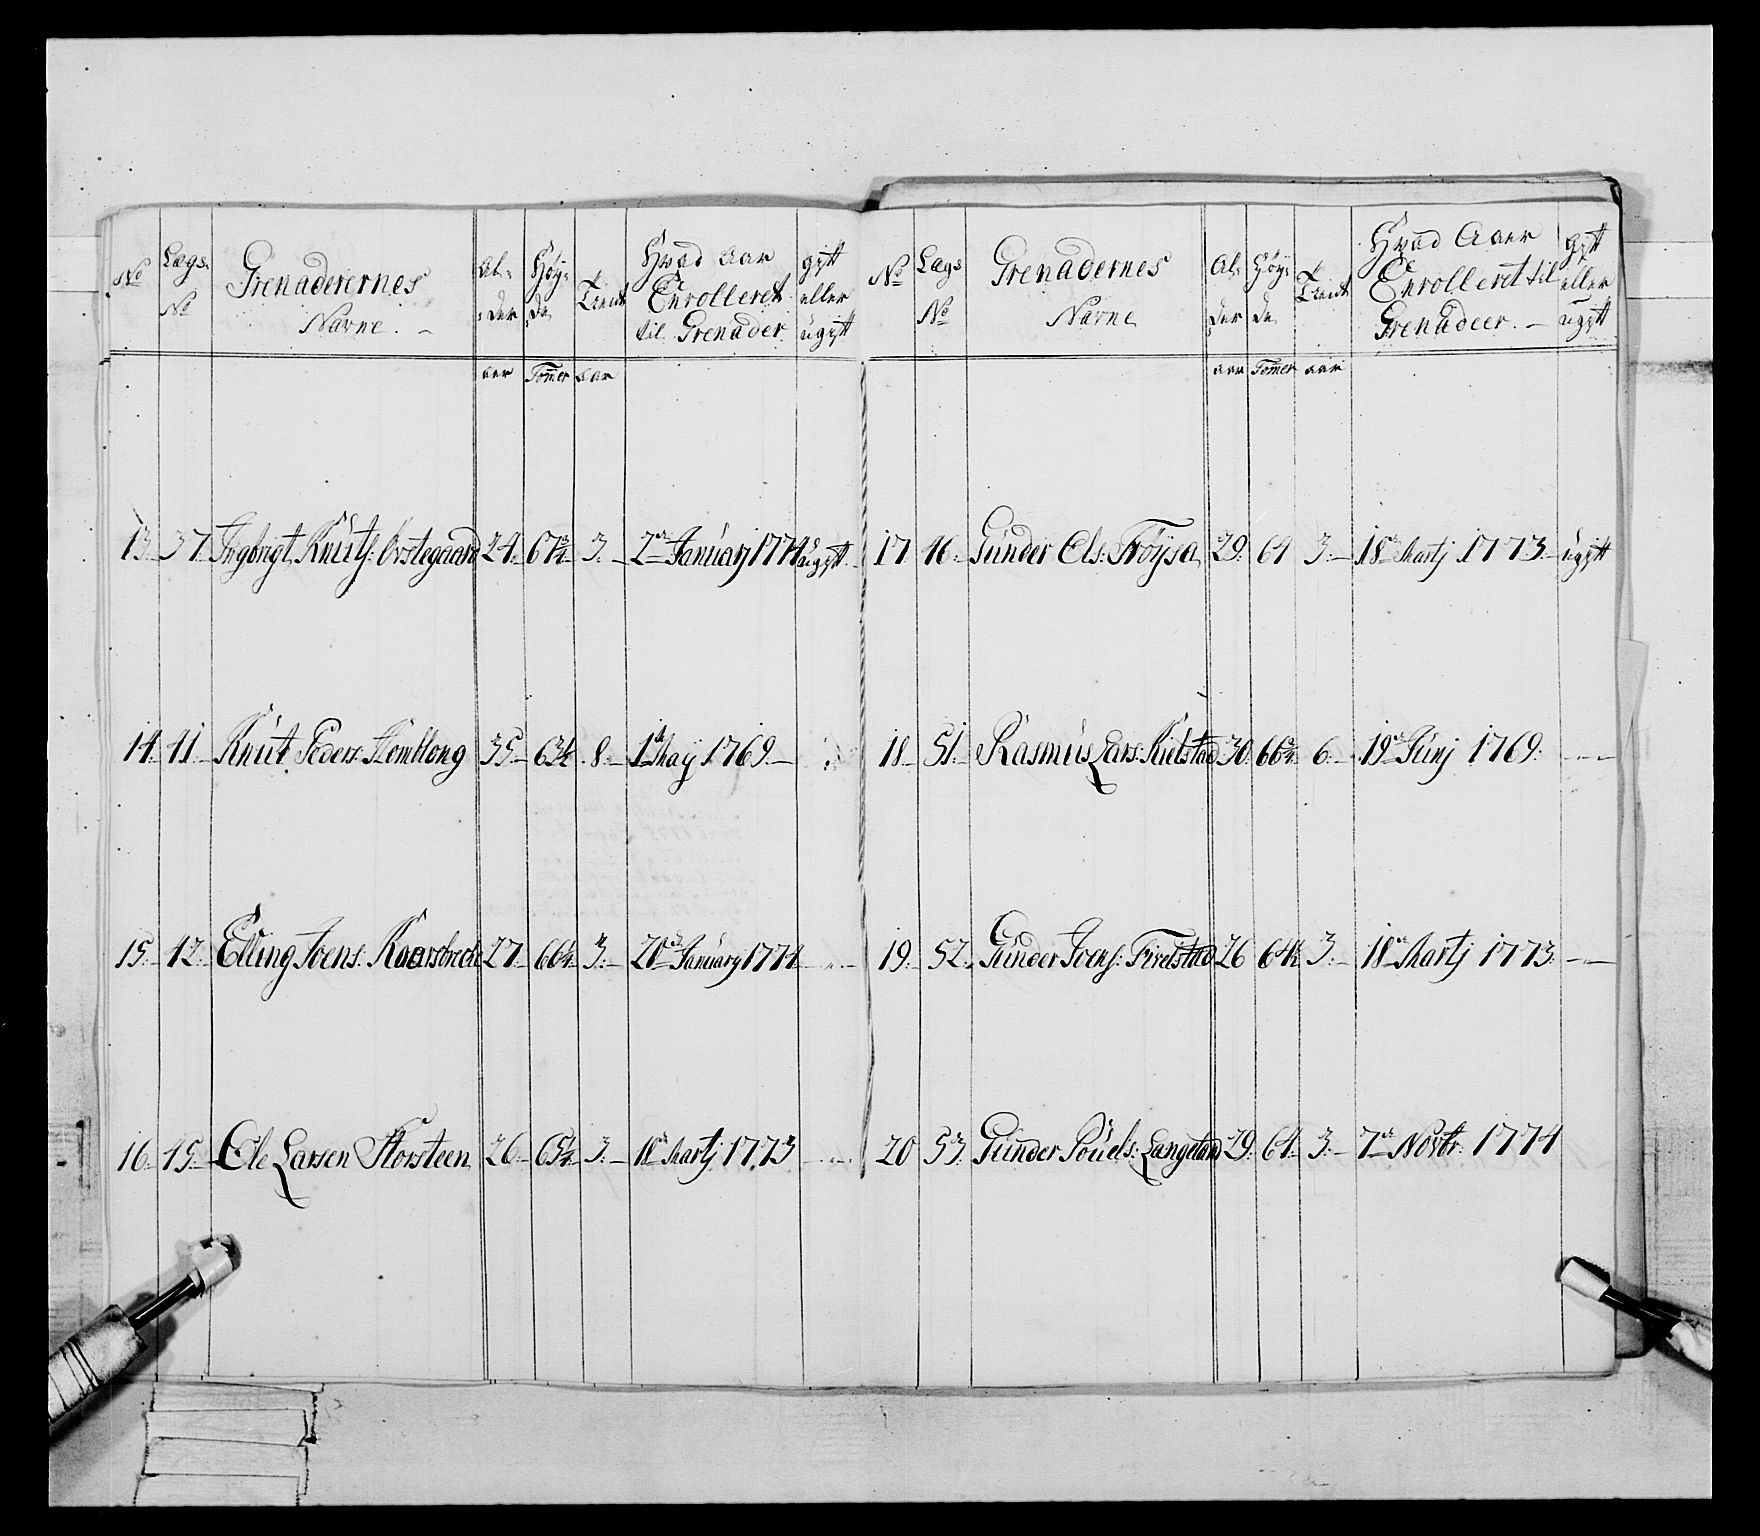 No Lægs No Grenaderernes Navne. Al-der Høy-de Tient Hvad Aar Enrolleret til Grenader gift eller ugift
aar Tomer aar
13. 37. Ingbrigt Knuts: Ovstegaard 24. 67 3. 2de January 1774 ugift
14. 41. Knut Peders: 35. 63 8. 1ste May 1769.
15. 42. Elling Joens: 27. 66 3. 20de January 1774
16. 45. Ole Larsen Storsteen 26. 65 3. 18de Martj 1773
No Lægs No Grenadernes Navne Al-der Høy-de Tient Hvad Aaer Enrolleret til Grenadeer. gift eller ugift
aar Tomer aar
17 46. Gunder Ols: Frøysa 29. 64 3. 18de Martj 1773. ugift
18 51. Rasmus Lars: Kielstad 30. 66 6. 19de Junj 1769.
19. 52. Gunder Joens: Firelstad 26 64 3. 18de Martj 1773.
20 53. Gunder Pouels: Langeland 29. 64. 3. 7de Novbr: 1774